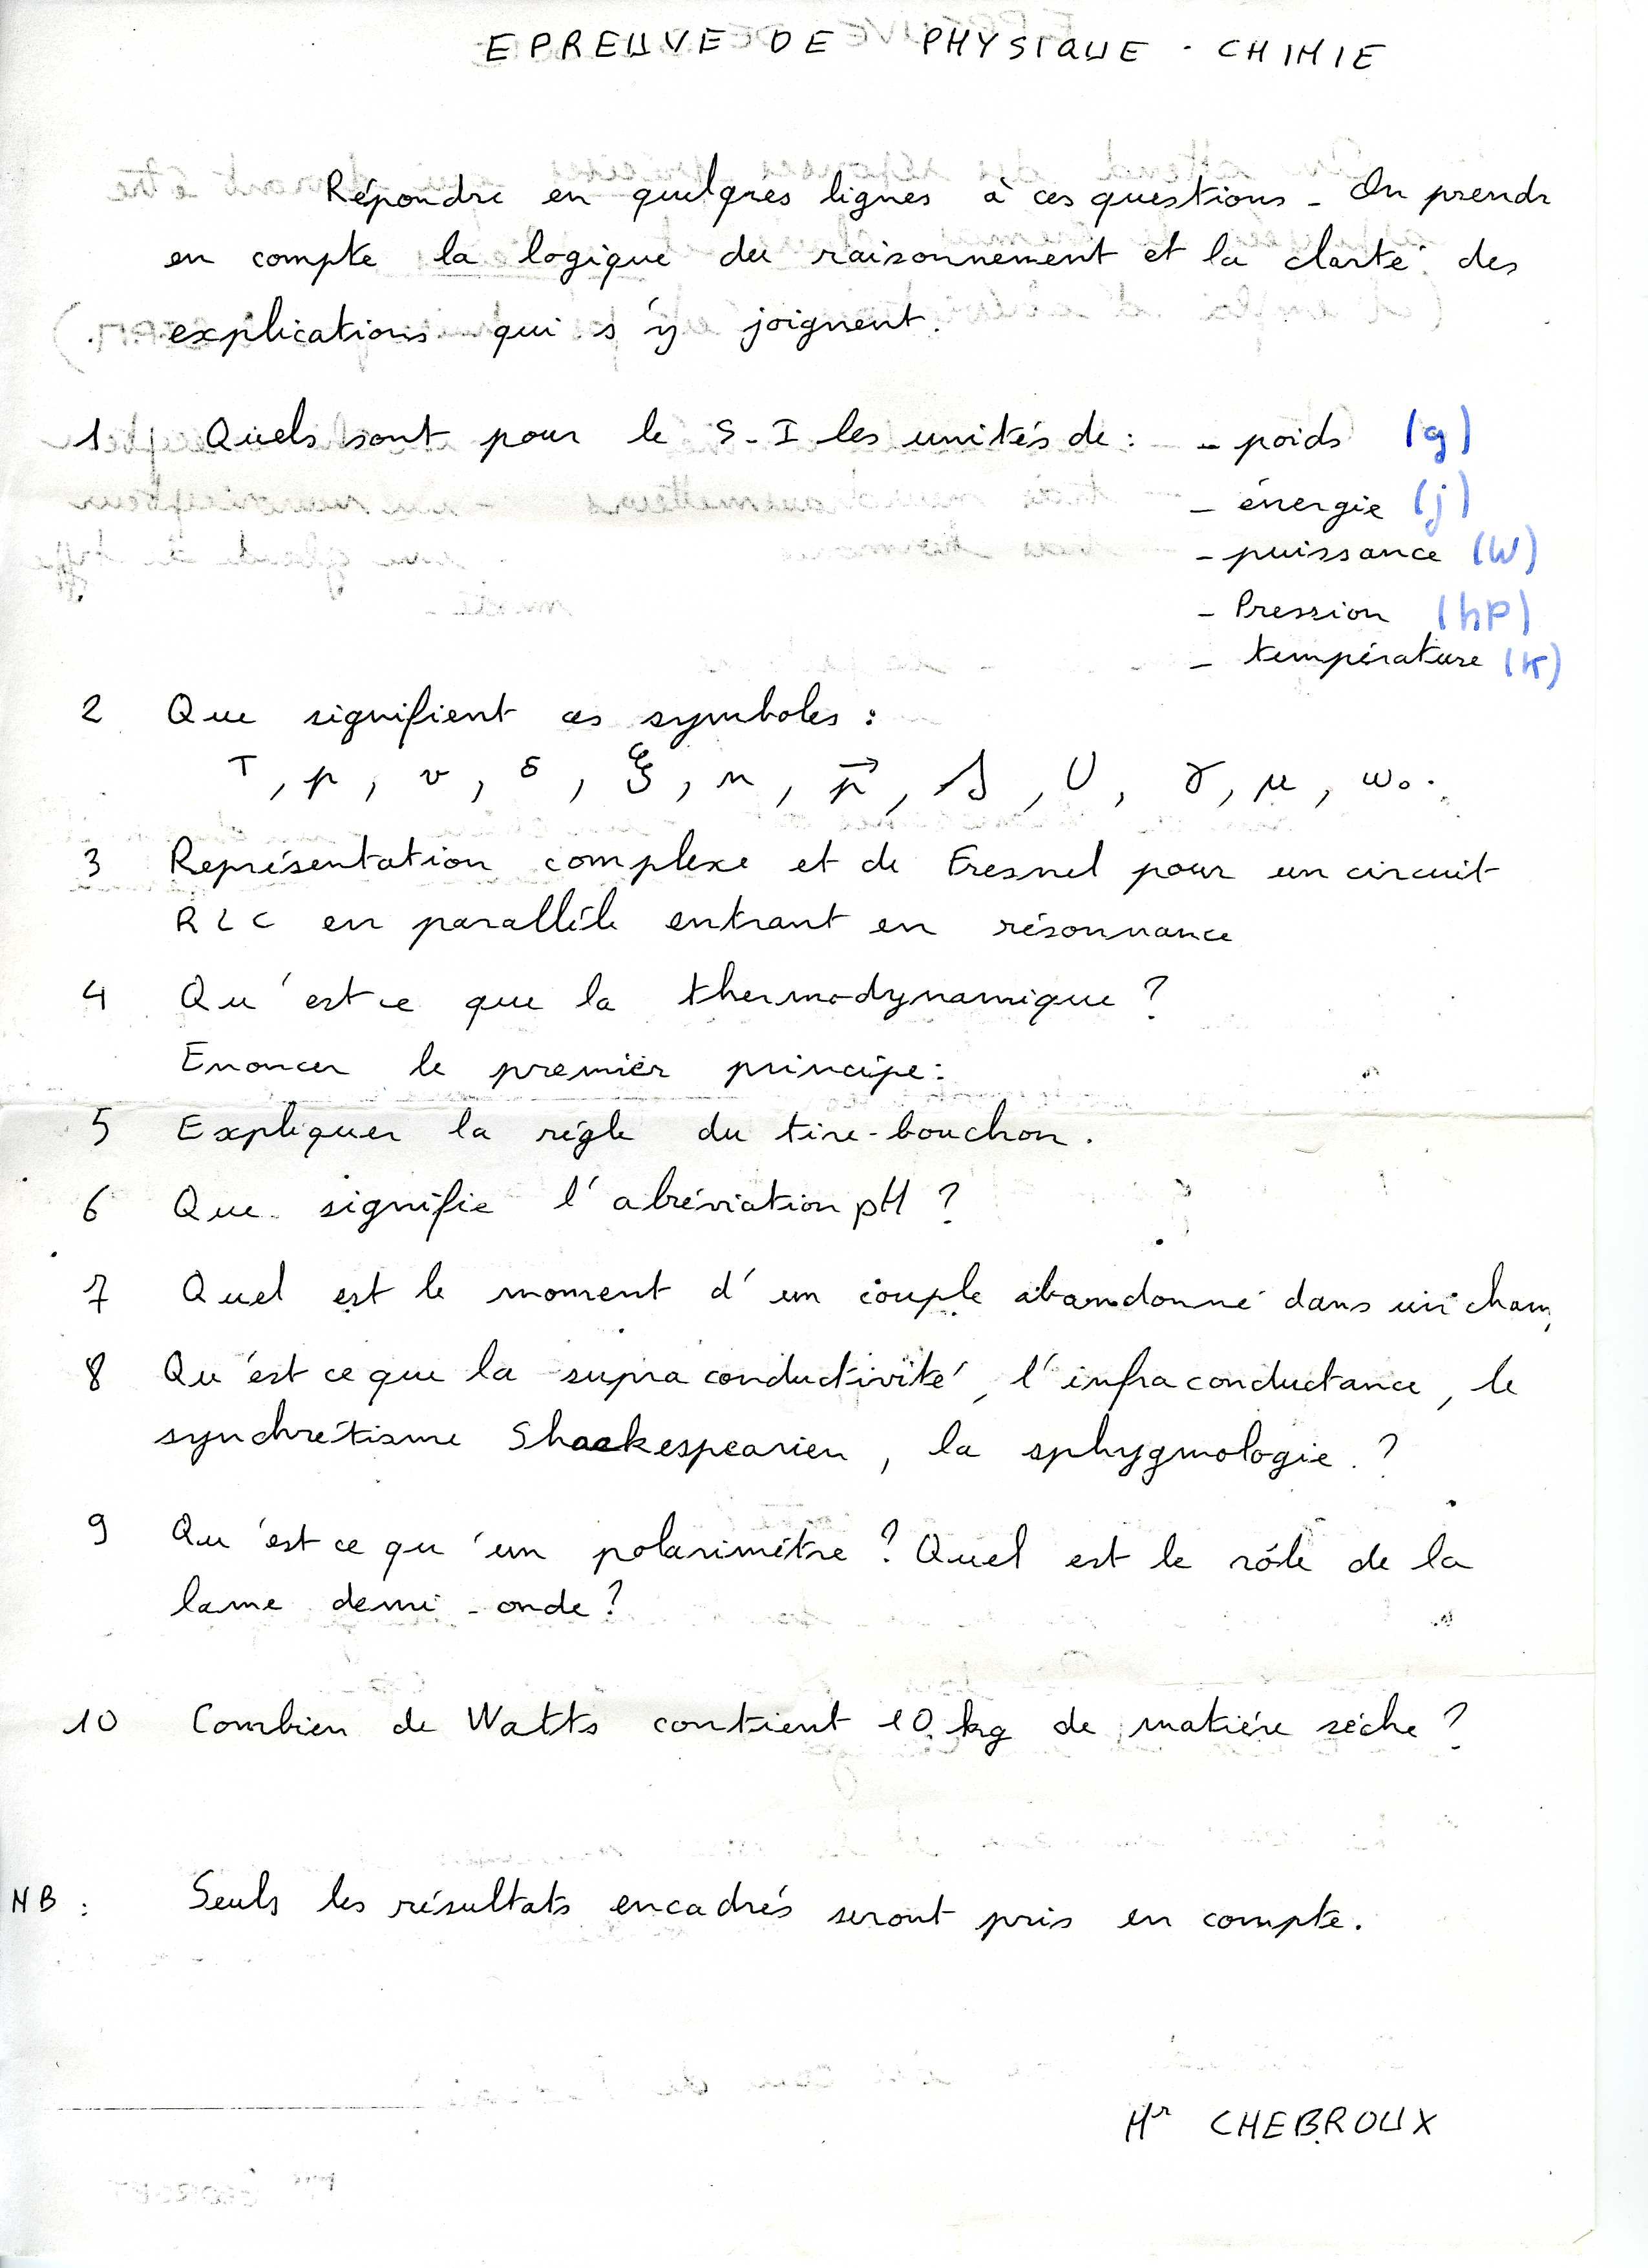 EPREUVE DE PHYSIQUE - CHIMIE
Répondre en quelques lignes à ces questions - On prendr
en compte la logique du raisonnement et la clarté des
explications qui s'y joignent.
1 Quels sont pour le S-I les unités de : - poids (g)
- énergie (j)
- puissance (W)
- Pression (hP)
- température (K)
2 Que signifient ces symboles :
T, p, v, δ, ξ, n, p⃗, S, U, γ, μ, ω₀.
3 Représentation complexe et de Fresnel pour un circuit
RLC en parallèle entrant en résonnance
4 Qu'est ce que la thermodynamique ?
Enoncer le premier principe :
5 Expliquer la règle du tire-bouchon.
6 Que signifie l'abréviation pH ?
7 Quel est le moment d'un couple abandonné dans un cham
8 Qu'est ce que la supraconductivité, l'infraconductance, le
synchrétisme Shakespearien, la sphygmologie ?
9 Qu'est ce qu'un polarimètre ? Quel est le rôle de la
lame demi-onde ?
10 Combien de Watts contient 10 kg de matière sèche ?
NB : Seuls les résultats encadrés seront pris en compte.
Mr CHEBROUX